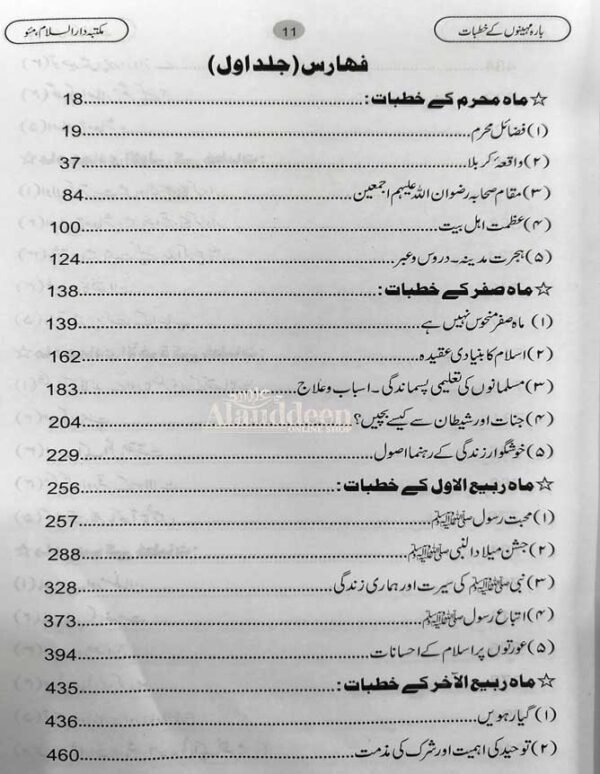 بارہ مہینوں کے خطبات
11
مکتبہ دارالسلام، مئو
فهارس (جلد اول)
☆ ماہ محرم کے خطبات:......18
(۱) فضائل محرم......19
(۲) واقعۂ کربلا......37
(۳) مقام صحابہ رضوان اللہ علیہم اجمعین......84
(۴) عظمت اہل بیت......100
(۵) ہجرت مدینہ۔ دروس وعبر......124
☆ ماہ صفر کے خطبات:......138
(۱) ماہ صفر منحوس نہیں ہے......139
(۲) اسلام کا بنیادی عقیدہ......162
(۳) مسلمانوں کی تعلیمی پسماندگی۔ اسباب وعلاج......183
(۴) جنات اور شیطان سے کیسے بچیں؟......204
(۵) خوشگوار زندگی کے رہنما اصول......229
☆ ماہ ربیع الاول کے خطبات:......256
(۱) محبت رسول ﷺ......257
(۲) جشن میلاد النبی ﷺ......288
(۳) نبی ﷺ کی سیرت اور ہماری زندگی......328
(۴) اتباع رسول ﷺ......373
(۵) عورتوں پر اسلام کے احسانات......394
☆ ماہ ربیع الآخر کے خطبات:......435
(۱) گیارہویں......436
(۲) توحید کی اہمیت اور شرک کی مذمت......460
Alauddeen
ONLINE SHOP